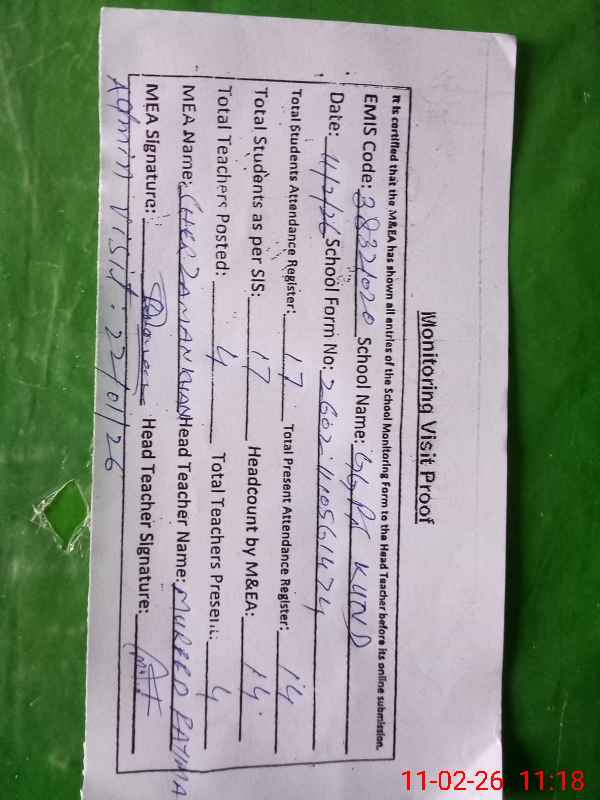 Monitoring Visit Proof
It is certified that the M&EA has shown all entries of the School Monitoring Form to the Head Teacher before its online submission.
EMIS Code: 38321020 School Name: GGPS KUND
Date: 11/2/26 School Form No: 2602110561474
Total Students Attendance Register: 17 Total Present Attendance Register: 14
Total Students as per SIS: 17 Headcount by M&EA: 14
Total Teachers Posted: 4 Total Teachers Present: 4
MEA Name: SHER ZAMAN KHAN Head Teacher Name: MUREED FATIMA
MEA Signature: Head Teacher Signature:
Admin Visit: 22/01/26
11-02-26 11:18